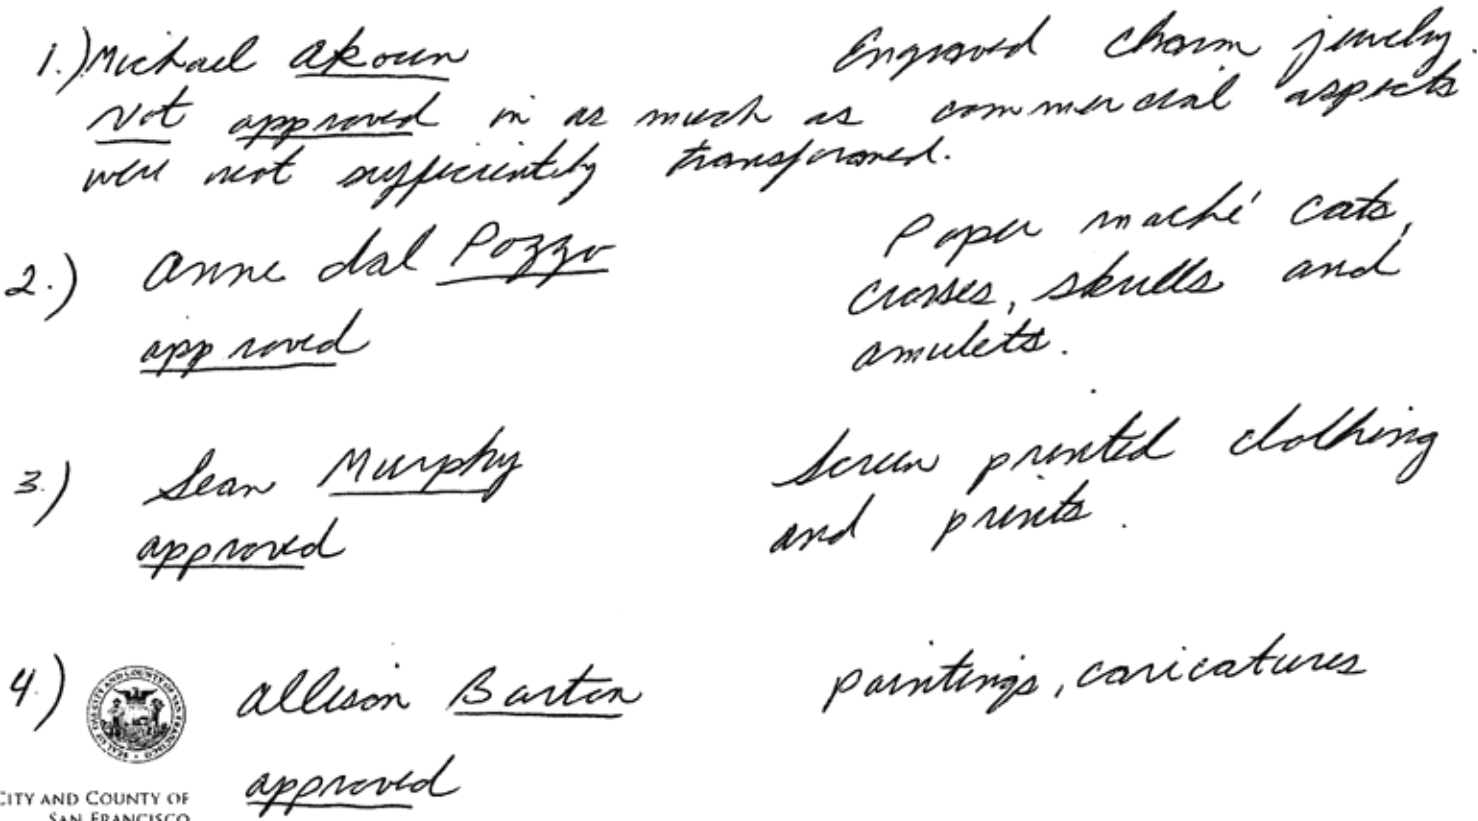 1.) Michael Akoun Engraved charm jewelry.
Not approved in as much as commercial aspects
were not sufficiently transformed.
2.) Anne dal Pozzo Paper maché cats,
crosses, skulls and
approved amulets.
3.) Sean Murphy Screen printed clothing
approved and prints.
4.) Allison Barton paintings, caricatures
approved
CITY AND COUNTY OF
SAN FRANCISCO